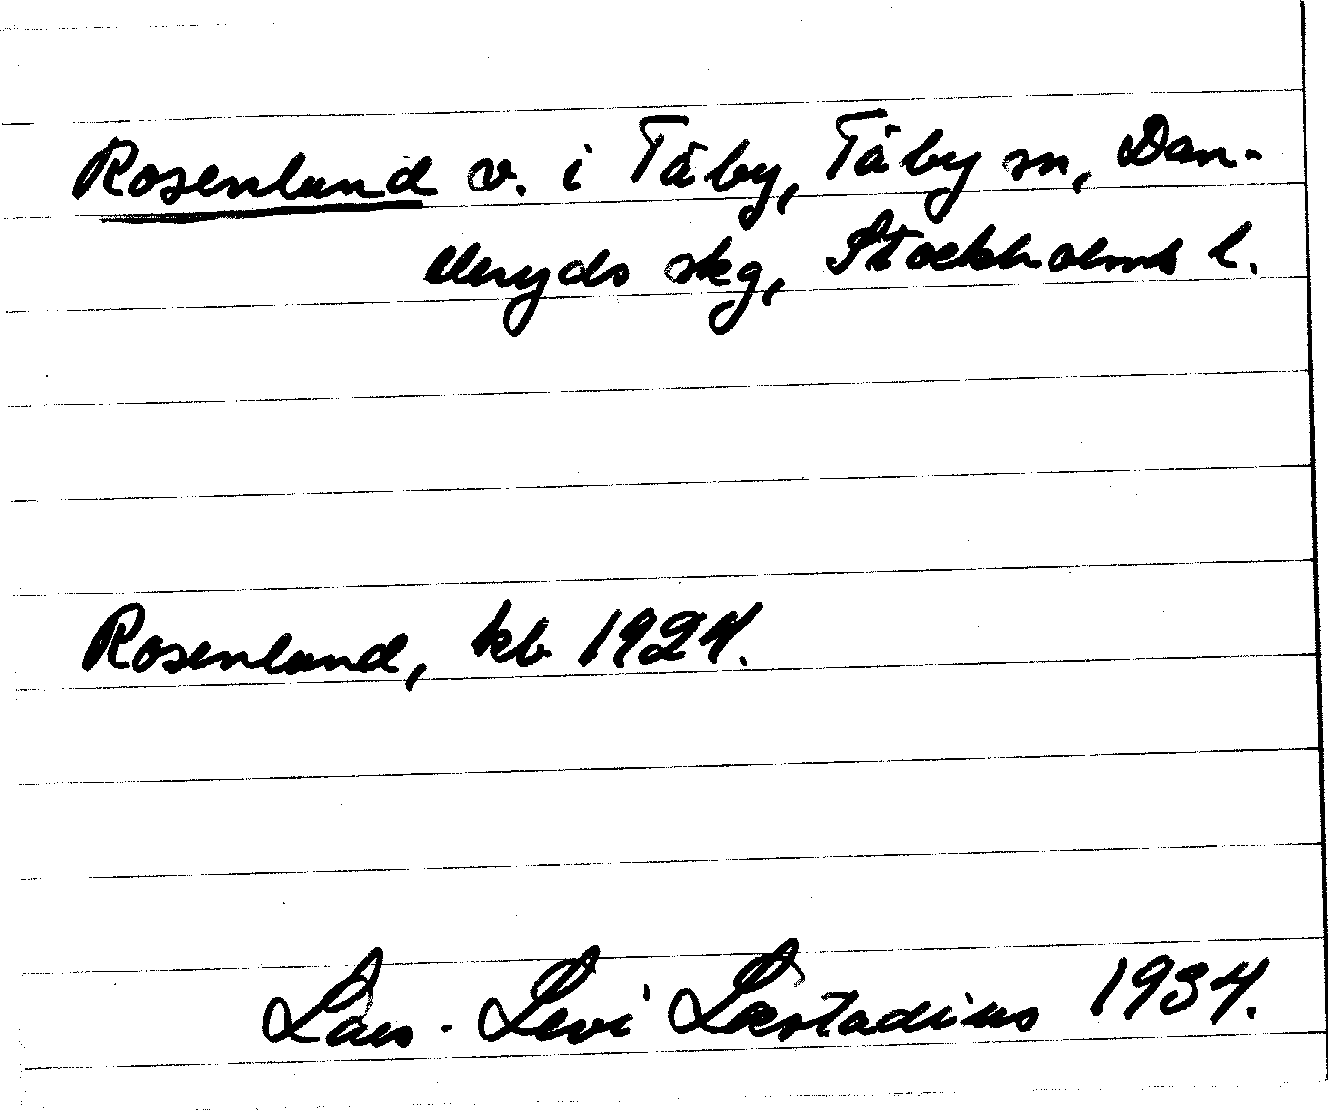 Rosenlund v. i Täby, Täby sn, Dan-
deryds skg, Stockholms l.
Rosenlund, kb 1924.
Lars-Levi Læstadius 1934.